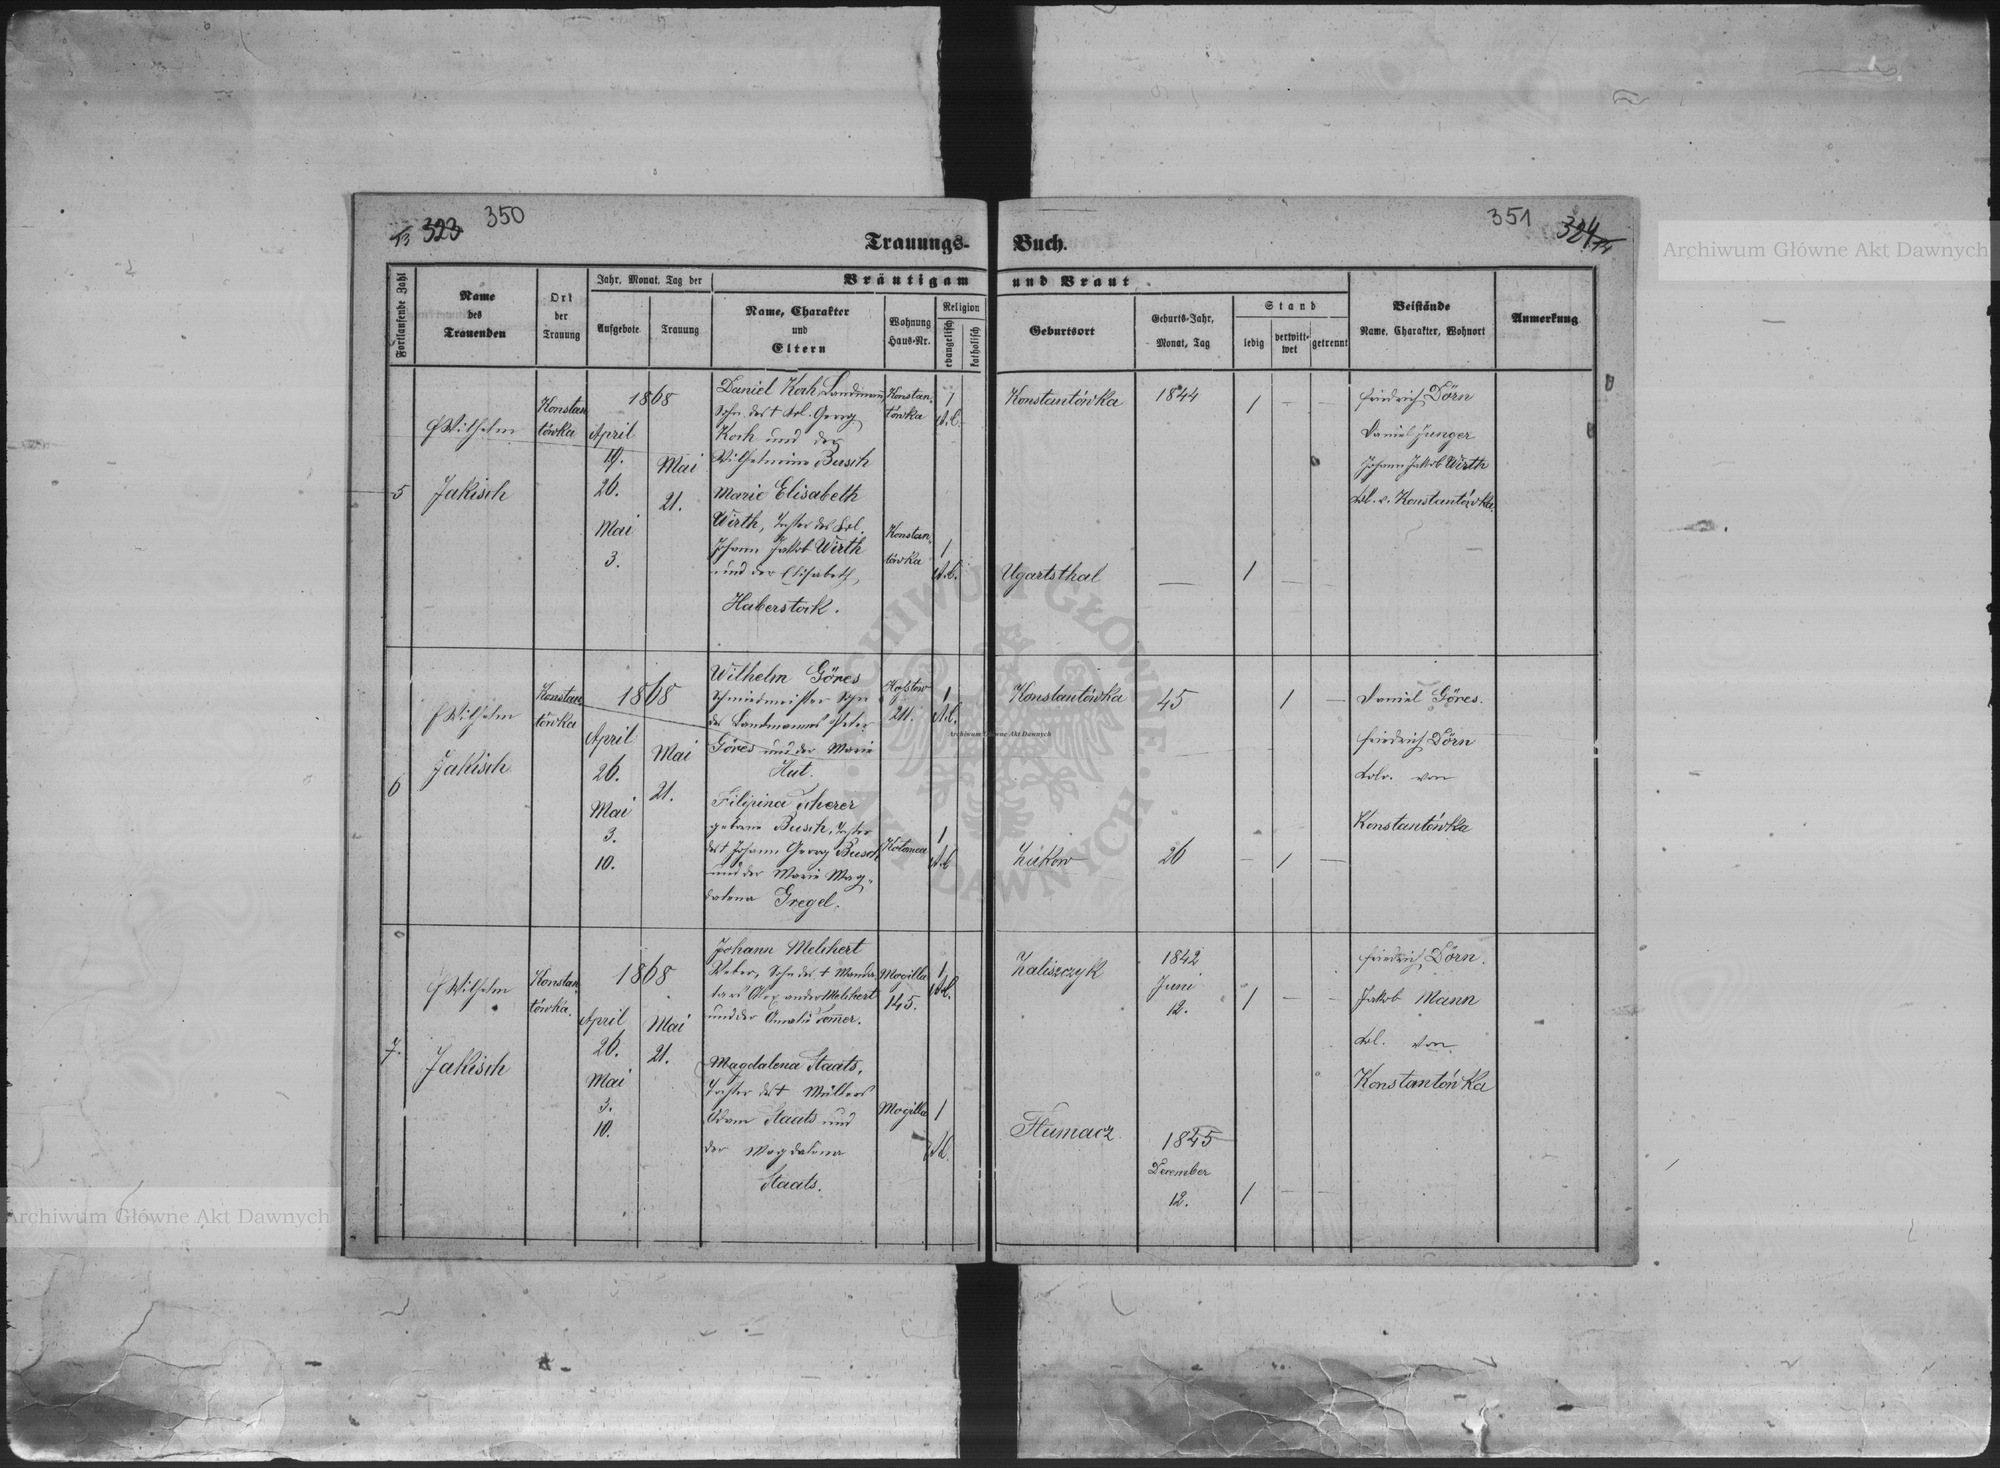 13 323 350
351 324 14
Archiwum Główne Akt Dawnych
Trauungs- Buch.
Fortlaufende Zahl
Name
des
Trauenden
Ort
der
Trauung
Jahr, Monat, Tag der
Aufgebote
Trauung
Bräutigam und Braut
Name, Charakter
und
Eltern
Wohnung
Haus-Nr.
Religion
evangelisch
katholisch
Geburtsort
Geburts-Jahr,
Monat, Tag
Stand
ledig
verwitt-
wet
getrennt
Beistände
Name, Charakter, Wohnort
Anmerkung
5
Wilhelm
Jakisch
Konstan
tówka
1868
April
19.
26.
Mai
3.
Mai
21.
Daniel Koch, Landmann,
Sohn des † Kol. Georg
Koch und der
Wilhelmine Busch
Konstan-
tówka
1
A.C.
Konstantówka
1844
1 - -
Friedrich Dörn
Daniel Junger
Johann Jakob Wirth
Kol. v. Konstantówka.
Marie Elisabeth
Wirth, Tochter des Kol.
Johann Jakob Wirth
und der Elisabeth,
Haberstock.
Konstan-
tówka
1
A.C.
Ugartsthal
—
1 —
6
Wilhelm
Jakisch
Konstan
tówka
1868
April
26.
Mai
3.
10.
Mai
21.
Wilhelm Göres
Schmiedmeister Sohn
des Landmannes Peter
Göres und der Marie
Hut.
211.
1
A.C.
Konstantówka
45
1 —
Daniel Göres.
Friedrich Dörn
von
Konstantówka
Filipina Scherer
geborene Busch, Tochter
des † Johann Georg Busch
und der Marie Mag-
dalena Gregel.
Kolomea
1
A.C.
Zukow
26
— 1 —
7.
Wilhelm
Jakisch
Konstan
tówka.
1868
April
26.
Mai
3.
10.
Mai
21.
Johann Melchert
Weber, Sohn des † Manda-
tars Alexander Melchert
und der Amalie Sommer.
Mogilla
145.
1
A.C.
Zaliszczyk
1842
Juni
12.
1 - -
Friedrich Dörn.
Jakob Mann
Kol. von
Konstantówka
Magdalena Staats,
Tochter des † Müllers
Adam Staats und
der Magdalena
Staats.
Mogilla
1
A.C.
Tlumacz
1845
December
12.
1 - -
ARCHIWUM GŁÓWNE AKT DAWNYCH
Archiwum Główne Akt Dawnych
Archiwum Główne Akt Dawnych